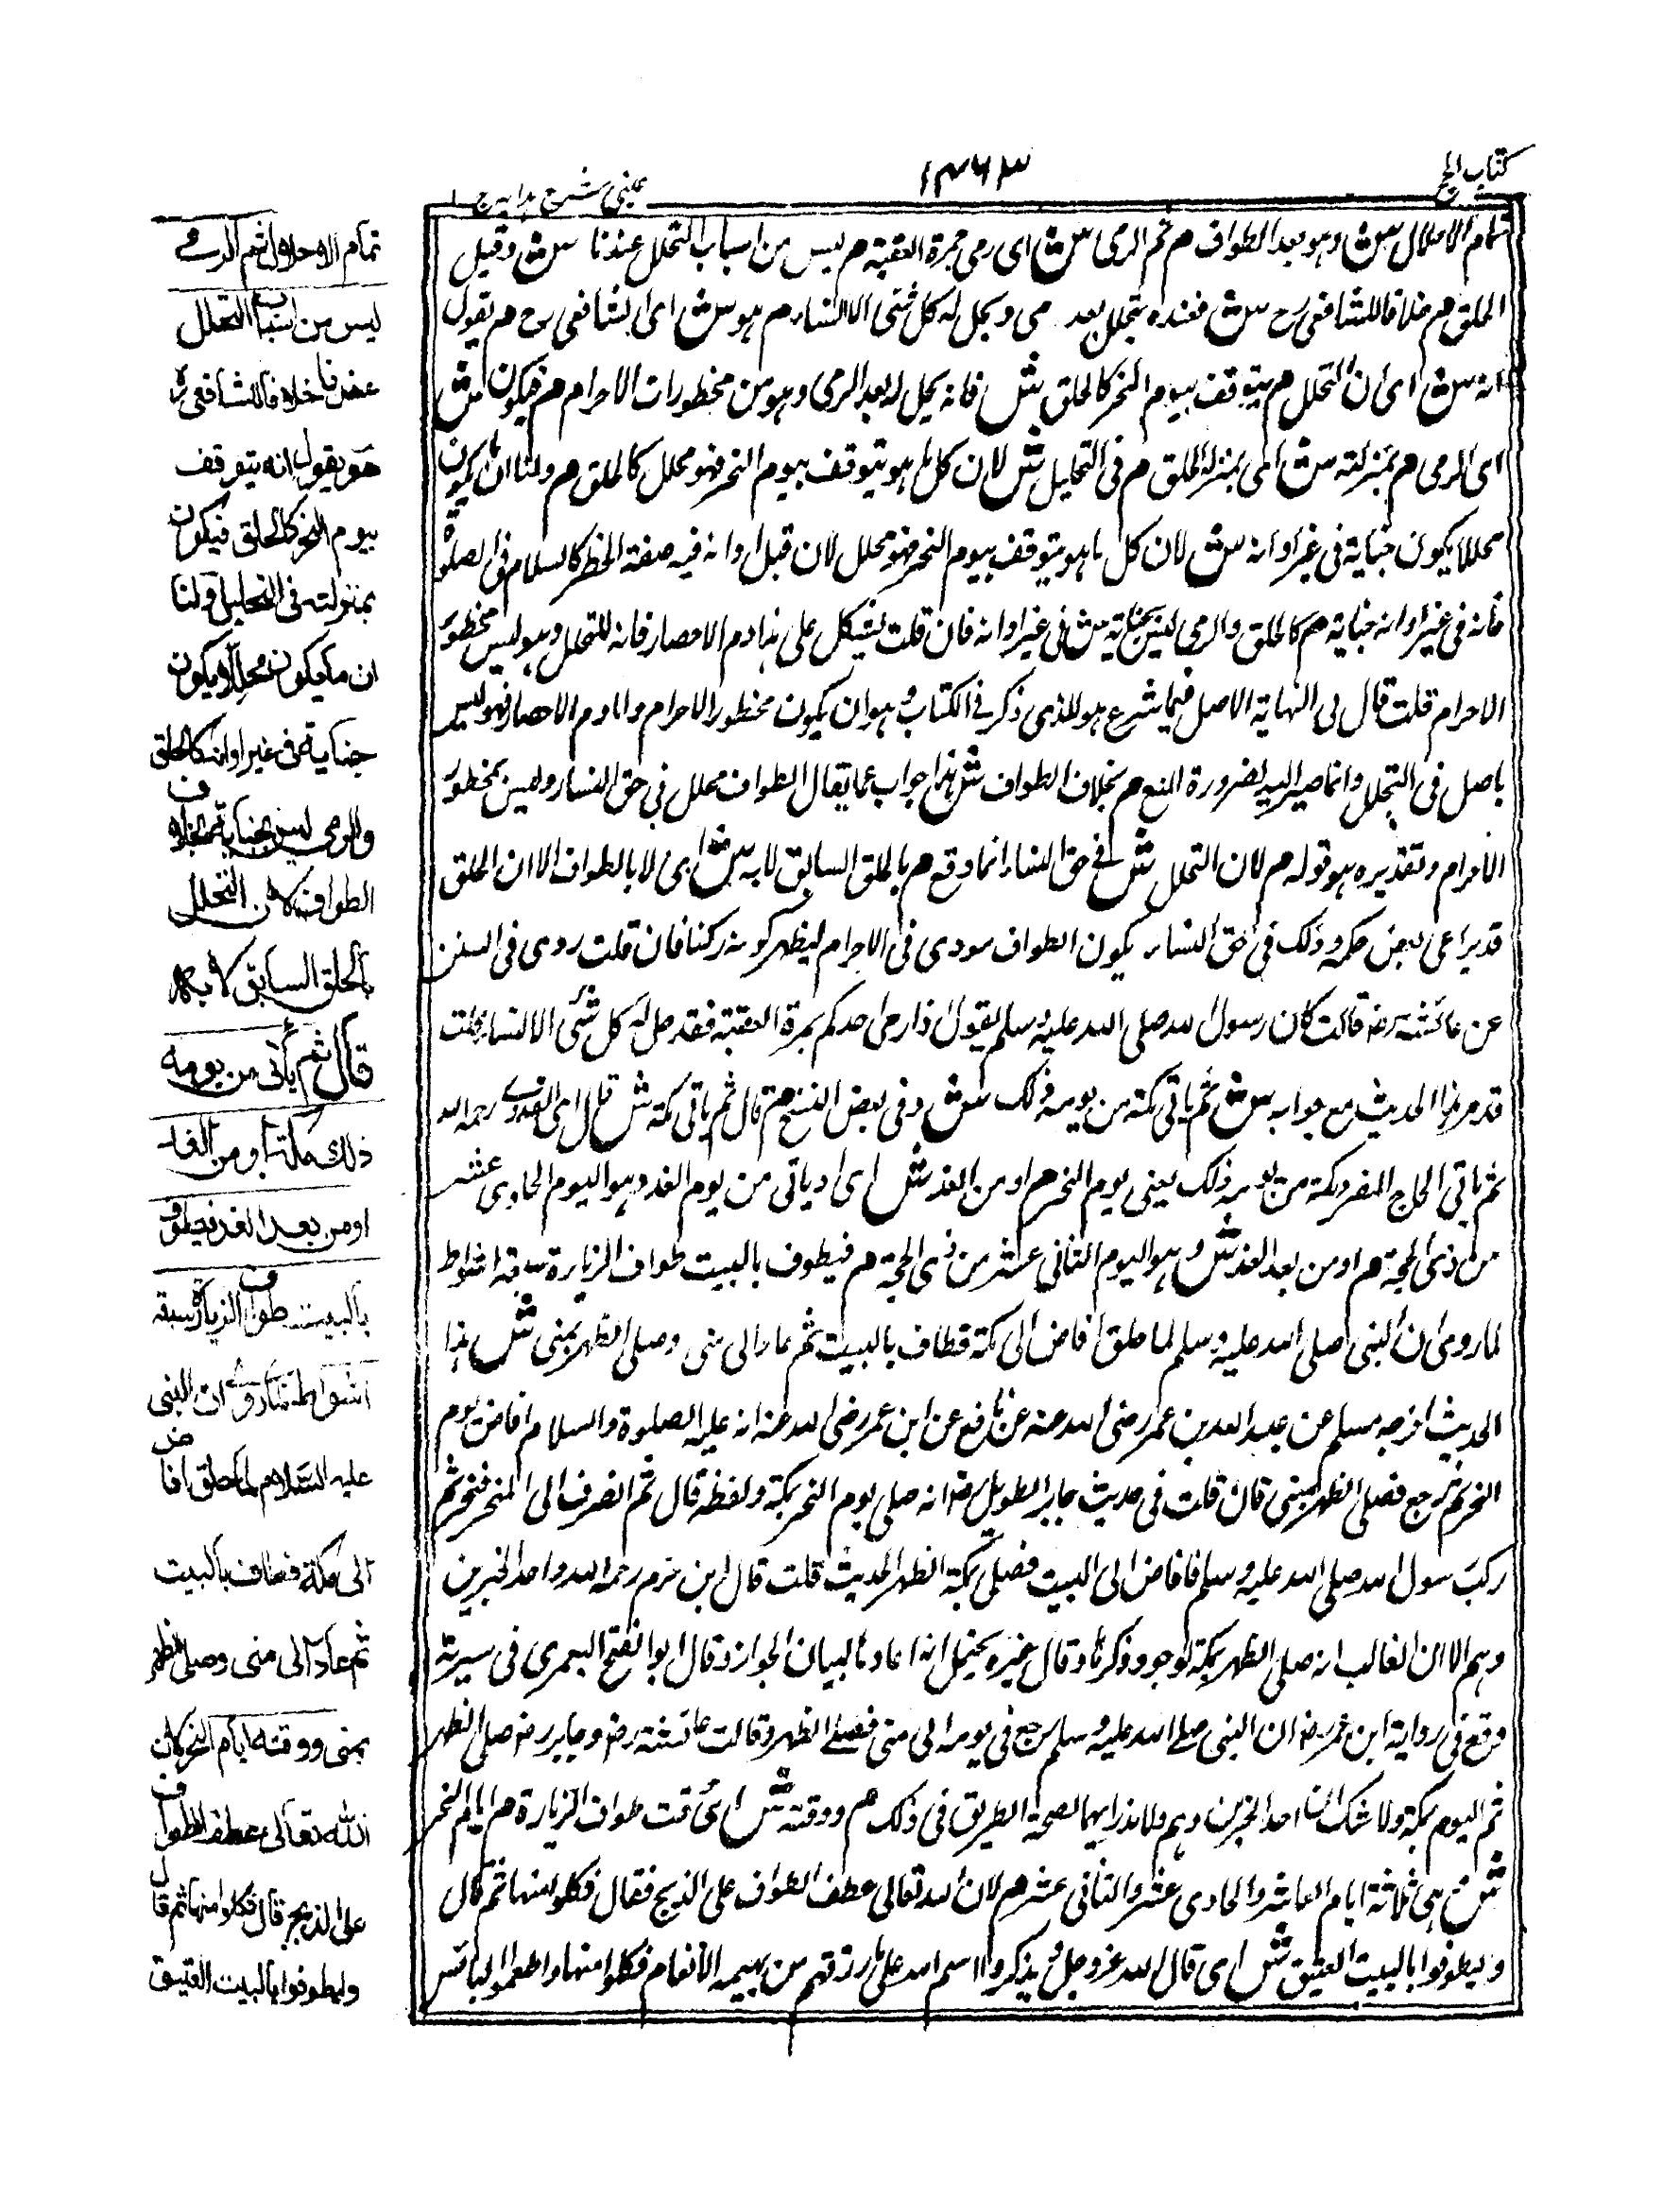 كتاب الحج
١٣٦٣
عینی شرح ہدایہ ج ١
تمام الاحلال ش وہو بعد الطواف م ثم الرمی ش ای رمی جمرة العقبة م لیس من اسباب التحلل عندنا ش وقیل
الحلق م خلافا للشافعی رح ش فعنده یتحلل بعد می ویحل له كل شئی الا النساء م ہو ش ای الشافعی رح م یقول
انه ش ای ان التحلل م یتوقف بیوم النحر كالحلق ش فانه یحل له بعد الرمی وہو من مخظورات الاحرام م فیكون ش
ای الرمی م بمنزلته ش ای بمنزلة الحلق م فی التحلیل ش لان كل ما ہو یتوقف بیوم النحر فہو محلل كالحلق م ولنا ان ما یكون
محللا یكون جنایة فی غیر اوانه ش لان كل ما ہو یتوقف بیوم النحر فہو محلل لان قبل اوانه فیه صفة الخطر كالسلام فی الصلوة
فانه فی غیر اوانه جنایة م كالحلق والرمی لیس بجنایة ش فی غیر اوانه فان قلت یشكل علی ہذا دم الاحصار فانه للتحلل وہو لیس مخطور
الاحرام قلت قال فی النہایة الاصل فیما شرع ہو الذی ذكر فی الكتاب وہو ان یكون مخطور الاحرام واما دم الاحصار فہو لیس
باصل فی التحلل وانما صیر الیه لضرورة المنع م بخلاف الطواف ش ہذا جواب عما یقال الطواف محلل فی حق النساء ولیس بمخطور
الاحرام وتقدیره ہو قوله م لان التحلل ش فی حق النساء انما وقع م بالحلق السابق لا به ش ای لا بالطواف الا ان الحلق
قدیرا عی بعض حكمه وذلك فی حق النساء یكون الطواف مودی فی الاحرام لیظہر كونه ركنا فان قلت روی فی السنن
عن عائشة رض قالت كان رسول الله صلی الله علیه وسلم یقول اذا رمی احدكم جمرة العقبة فقد حل له كل شئی الا النساء قلت
قد مر ہذا الحدیث مع جوابه ش ثم یاتی مكة من یومه ذلك ش وفی بعض النسخ م قال ثم یاتی مكة ش قال ای القدوری رحمه الله
ثم یاتی الحاج المفرد مكة من یومه ذلك یعنی یوم النحر م او من الغد ش ای او یاتی من یوم الغد وہو الیوم الحادی عشر
من ذی الحجة م او من بعد الغد ش وہو الیوم الثانی عشر من ذی الحجة م فیطوف بالبیت طواف الزیارة سبعة اشواط
لما روی ان النبی صلی الله علیه وسلم لما حلق افاض الی مكة فطاف بالبیت ثم عاد الی منی وصلی الظہر بمنی ش ہذا
الحدیث اخرجه مسلم عن عبید الله بن عمر رضی الله عنه عن نافع عن ابن عمر رضی الله عنه انه علیه الصلوة والسلام افاض یوم
النحر ثم رجع فصلی الظہر بمنی قال قلت فی حدیث جابر الطویل رض انه صلی یوم النحر بمكة ولفظه قال ثم انصرف الی المنحر فنحر ثم
ركب رسول الله صلی الله علیه وسلم فافاض الی البیت فصلی بمكة الظہر الحدیث قلت قال ابن حزم رحمه الله واحد الخبرین
وہم الا ان الغالب انه صلی الظہر بمكة لوجوه ذكرہا وقال غیره یحتمل انه اعادہا لبیان الجواز وقال ابو الفتح الیعمری فی سیرته
وقع فی روایة ابن عمر رض ان النبی صلی الله علیه وسلم رجع فی یومه الی منی فصلی الظہر وقالت عائشة رض وجابر رض صلی الظہر
ثم الیوم بمكة ولا شك ان احد الخبرین وہم ولا ندری ایہما لصحة الطریق فی ذلك م ووقته ش ای وقت طواف الزیارة م ایام النحر
ش ہی ثلاثة ایام العاشر والحادی عشر والثانی عشر م لان الله تعالی عطف الطواف علی الذبح فقال فكلوا منہا ثم قال
ولیطوفوا بالبیت العتیق ش ای قال الله عز وجل ویذكروا اسم الله علی ما رزقہم من بہیمة الانعام فكلوا منہا واطعموا البائس
تمام الاحلال ثم الرمی
لیس من اسباب التحلل
عندنا خلافا للشافعی رح
هو یقول انه یتوقف
بیوم النحر كالحلق فیكون
بمنزلته فی التحلیل ولنا
ان ما یكون محللا یكون
جنایة فی غیر اوانه كالحلق
والرمی لیس بجنایة بخلاف
الطواف لان التحلل
بالحلق السابق لا به
قال ثم یأتی من یومه
ذلك مكة او من الغد
او من بعد الغد فیطوف
بالبیت طواف الزیارة سبعة
اشواط لما روی ان النبی
علیه السلام لما حلق افاض
الی مكة فطاف بالبیت
ثم عاد الی منی وصلی الظهر
بمنی ووقته ایام النحر لان
الله تعالی عطف الطواف
علی الذبح قال فكلوا منها ثم قال
ولیطوفوا بالبیت العتیق